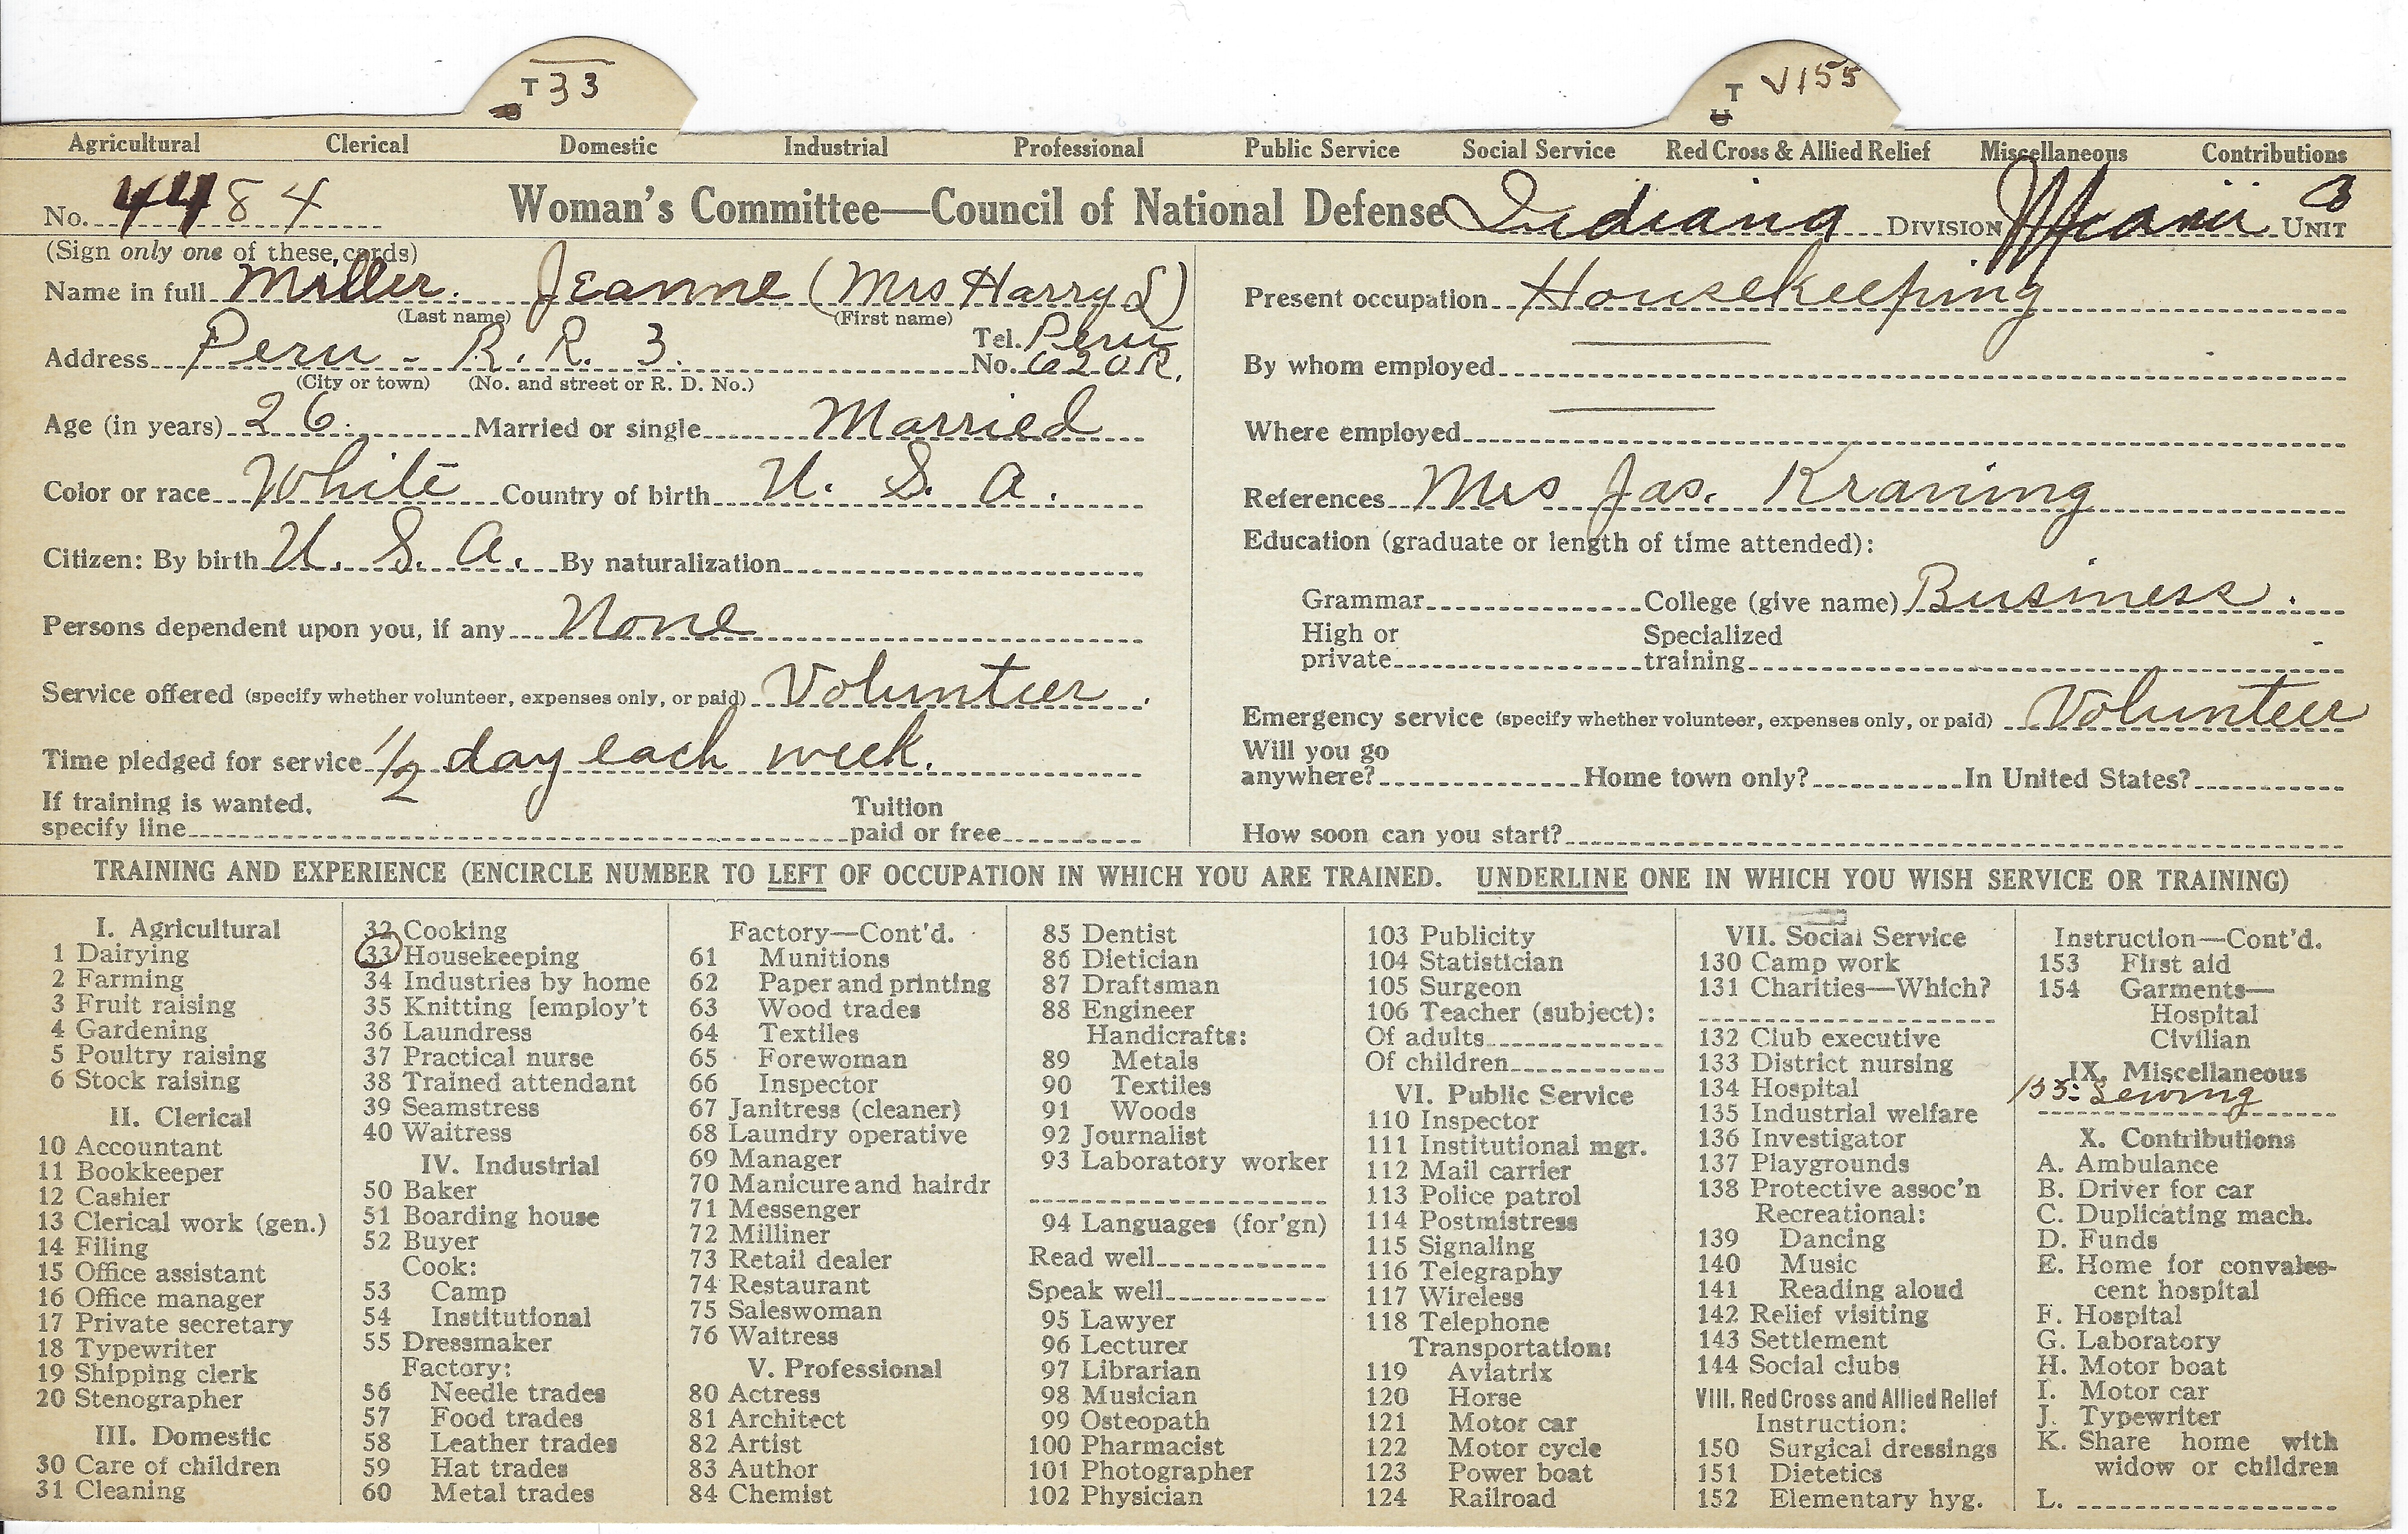 T 33
T V155
U
Agricultural Clerical Domestic Industrial Professional Public Service Social Service Red Cross & Allied Relief Miscellaneous Contributions
No. 4484 Woman's Committee—Council of National Defense Indiana DIVISION Miami 3 UNIT
(Sign only one of these cards)
Name in full Miller. Jeanne (Mrs Harry S)
(Last name) (First name)
Address Peru - R. R. 3. Tel. No. Peru 620R.
(City or town) (No. and street or R. D. No.)
Age (in years) 26. Married or single Married
Color or race White Country of birth U. S. A.
Citizen: By birth U. S. A. By naturalization
Persons dependent upon you, if any None
Service offered (specify whether volunteer, expenses only, or paid) Volunteer.
Time pledged for service 1/2 day each week.
If training is wanted, specify line Tuition paid or free
Present occupation Housekeeping
By whom employed
Where employed
References Mrs Jas. Kraning
Education (graduate or length of time attended):
Grammar College (give name) Business.
High or private Specialized training
Emergency service (specify whether volunteer, expenses only, or paid) Volunteer
Will you go anywhere? Home town only? In United States?
How soon can you start?
TRAINING AND EXPERIENCE (ENCIRCLE NUMBER TO LEFT OF OCCUPATION IN WHICH YOU ARE TRAINED. UNDERLINE ONE IN WHICH YOU WISH SERVICE OR TRAINING)
I. Agricultural
1 Dairying
2 Farming
3 Fruit raising
4 Gardening
5 Poultry raising
6 Stock raising
II. Clerical
10 Accountant
11 Bookkeeper
12 Cashier
13 Clerical work (gen.)
14 Filing
15 Office assistant
16 Office manager
17 Private secretary
18 Typewriter
19 Shipping clerk
20 Stenographer
III. Domestic
30 Care of children
31 Cleaning
32 Cooking
33 Housekeeping
34 Industries by home
35 Knitting [employ't
36 Laundress
37 Practical nurse
38 Trained attendant
39 Seamstress
40 Waitress
IV. Industrial
50 Baker
51 Boarding house
52 Buyer
Cook:
53 Camp
54 Institutional
55 Dressmaker
Factory:
56 Needle trades
57 Food trades
58 Leather trades
59 Hat trades
60 Metal trades
Factory—Cont'd.
61 Munitions
62 Paper and printing
63 Wood trades
64 Textiles
65 Forewoman
66 Inspector
67 Janitress (cleaner)
68 Laundry operative
69 Manager
70 Manicure and hairdr
71 Messenger
72 Milliner
73 Retail dealer
74 Restaurant
75 Saleswoman
76 Waitress
V. Professional
80 Actress
81 Architect
82 Artist
83 Author
84 Chemist
85 Dentist
86 Dietician
87 Draftsman
88 Engineer
Handicrafts:
89 Metals
90 Textiles
91 Woods
92 Journalist
93 Laboratory worker
94 Languages (for'gn)
Read well
Speak well
95 Lawyer
96 Lecturer
97 Librarian
98 Musician
99 Osteopath
100 Pharmacist
101 Photographer
102 Physician
103 Publicity
104 Statistician
105 Surgeon
106 Teacher (subject):
Of adults
Of children
VI. Public Service
110 Inspector
111 Institutional mgr.
112 Mail carrier
113 Police patrol
114 Postmistress
115 Signaling
116 Telegraphy
117 Wireless
118 Telephone
Transportation:
119 Aviatrix
120 Horse
121 Motor car
122 Motor cycle
123 Power boat
124 Railroad
VII. Social Service
130 Camp work
131 Charities—Which?
132 Club executive
133 District nursing
134 Hospital
135 Industrial welfare
136 Investigator
137 Playgrounds
138 Protective assoc'n
Recreational:
139 Dancing
140 Music
141 Reading aloud
142 Relief visiting
143 Settlement
144 Social clubs
VIII. Red Cross and Allied Relief
Instruction:
150 Surgical dressings
151 Dietetics
152 Elementary hyg.
Instruction—Cont'd.
153 First aid
154 Garments—
Hospital
Civilian
IX. Miscellaneous
155: Sewing
X. Contributions
A. Ambulance
B. Driver for car
C. Duplicating mach.
D. Funds
E. Home for convales-
cent hospital
F. Hospital
G. Laboratory
H. Motor boat
I. Motor car
J. Typewriter
K. Share home with
widow or children
L.